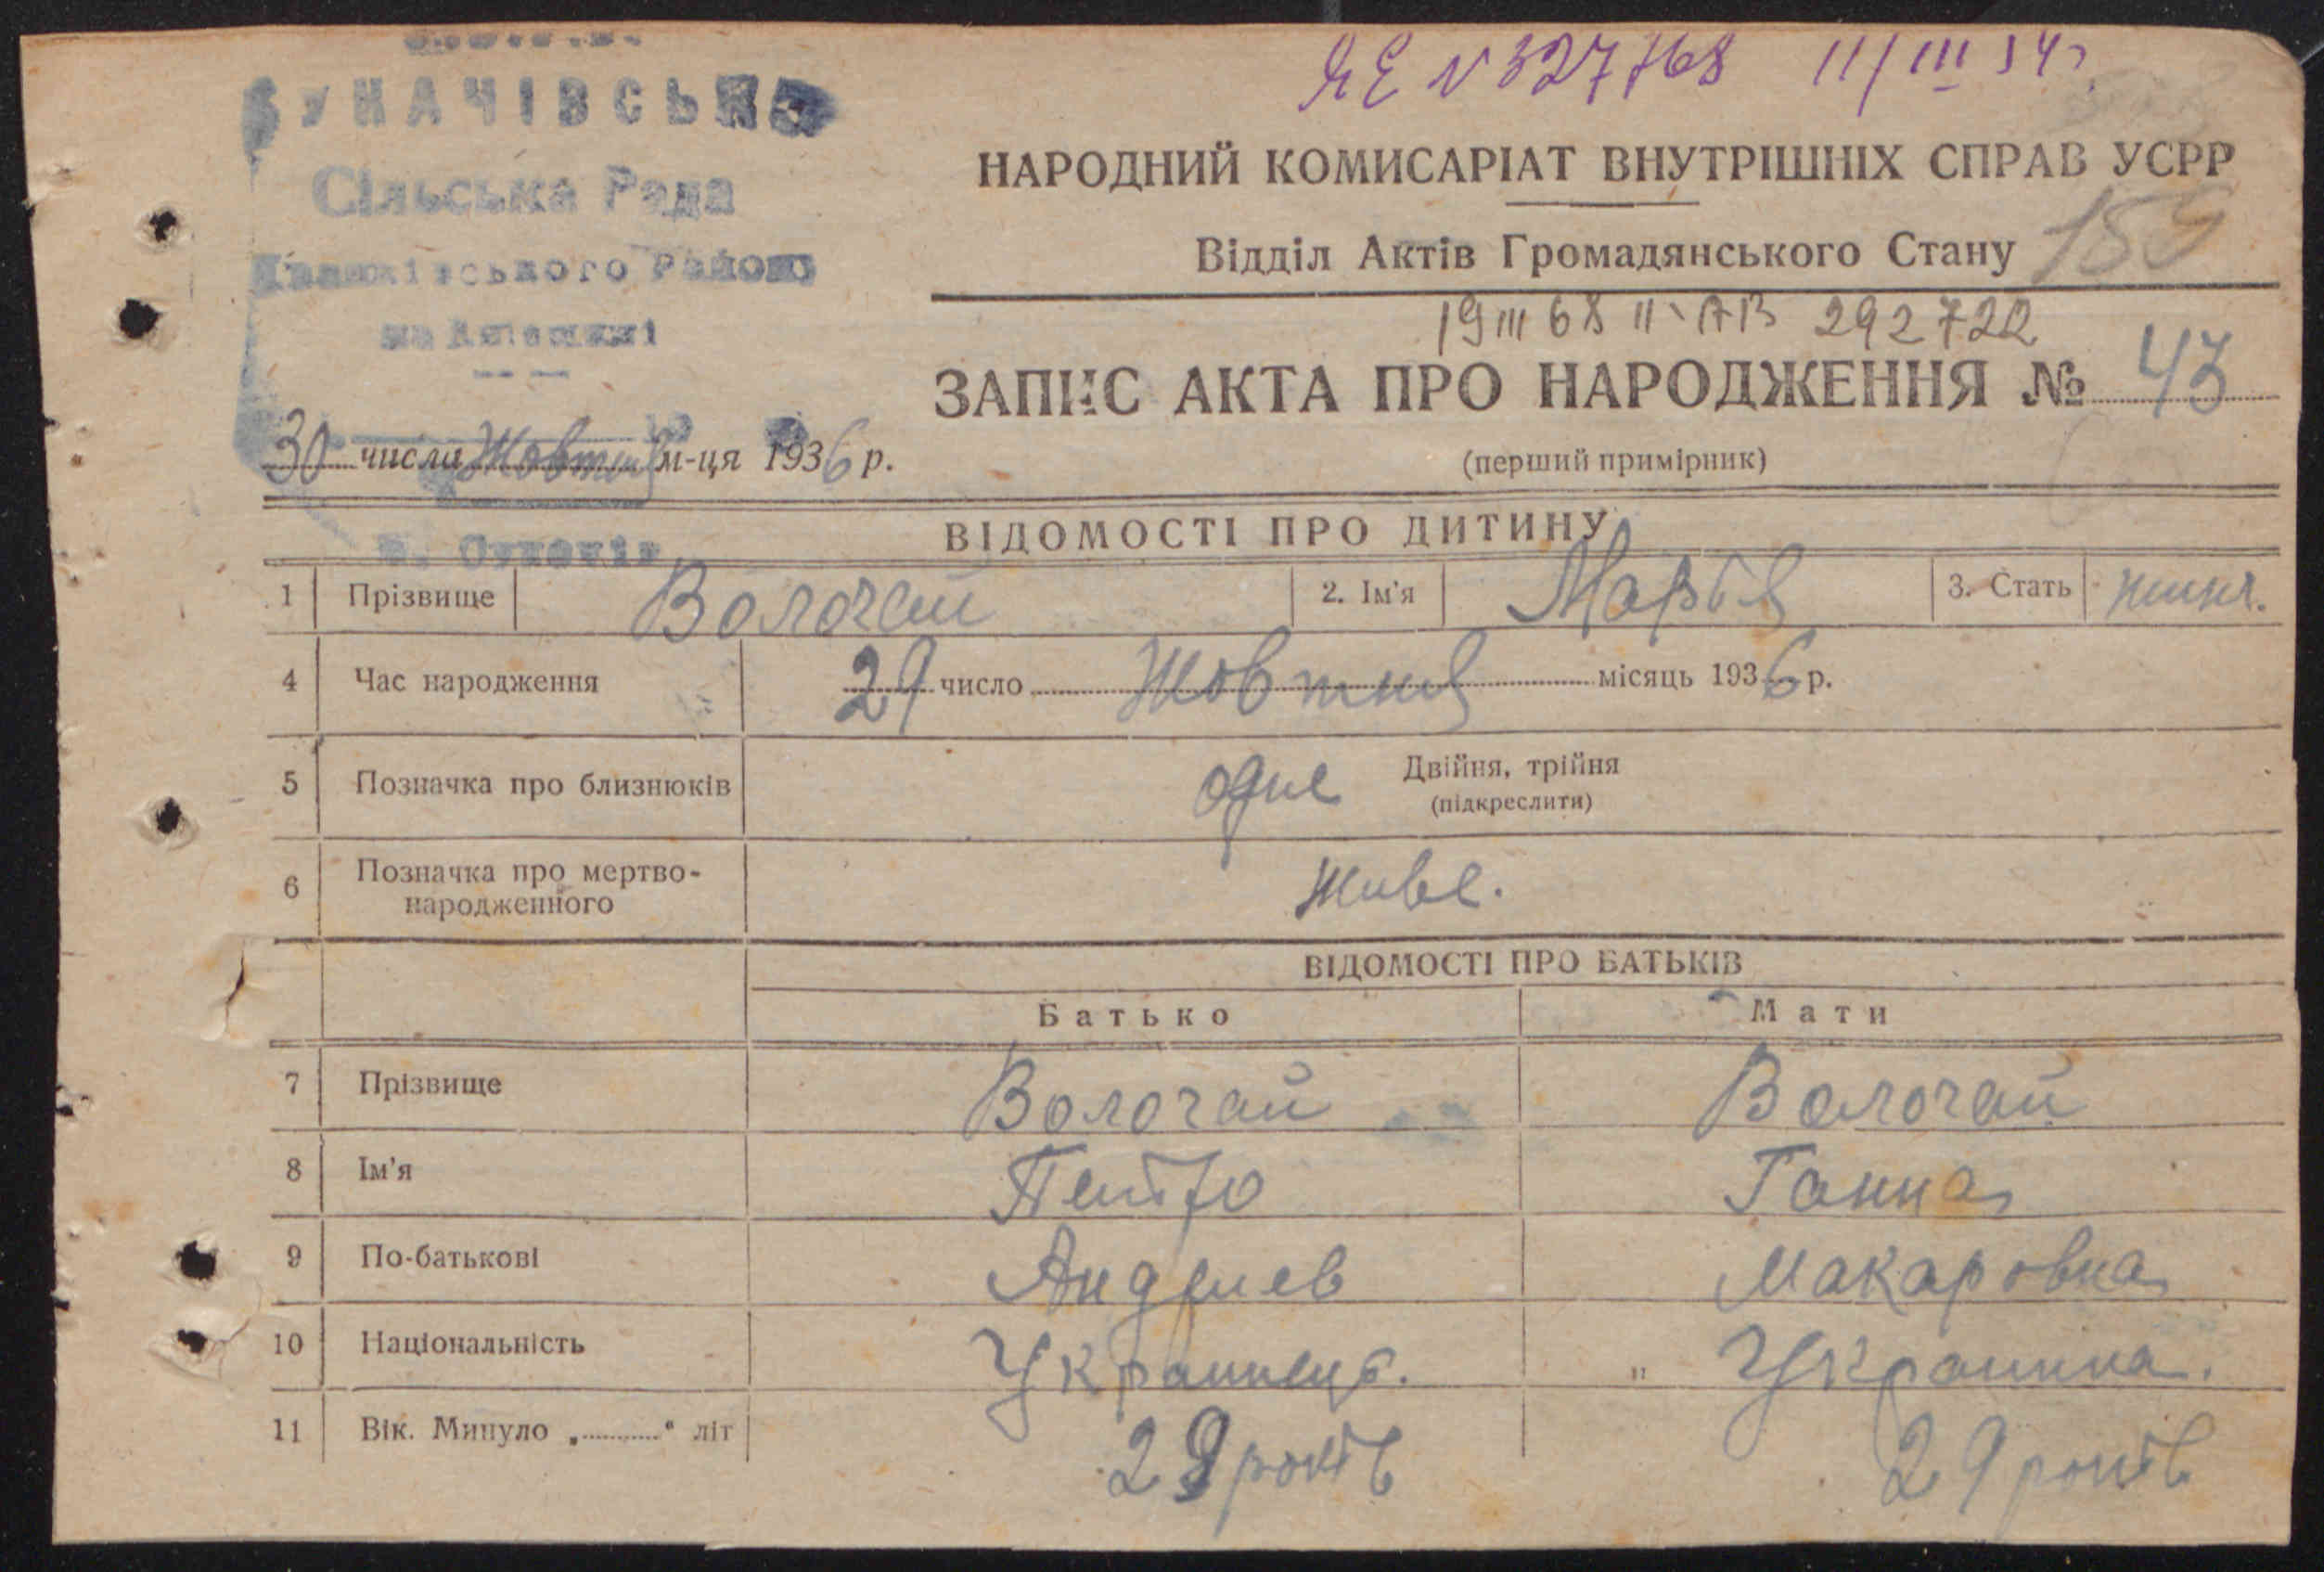 Сільська Рада
Району
ЯЕ N 327768 11/III 54г.
НАРОДНИЙ КОМИСАРІАТ ВНУТРІШНІХ СПРАВ УСРР
Відділ Актів Громадянського Стану 159
19 III 68 II-АВ 292722
ЗАПИС АКТА ПРО НАРОДЖЕННЯ № 43
(перший примірник)
30 числа Жовтня м-ця 1936 р.
ВІДОМОСТІ ПРО ДИТИНУ
1 Прізвище Волочай 2. Ім'я Марія 3. Стать
4 Час народження 29 число Жовтня місяць 1936 р.
5 Позначка про близнюків одне Двійня, трійня
(підкреслити)
6 Позначка про мертво-
народженного живе.
ВІДОМОСТІ ПРО БАТЬКІВ
Батько Мати
7 Прізвище Волочай Волочай
8 Ім'я Петро Ганна
9 По-батькові Андриев Макаровна
10 Національність Украинець. " Украинка.
11 Вік. Минуло „ “ літ 29 років 29 років